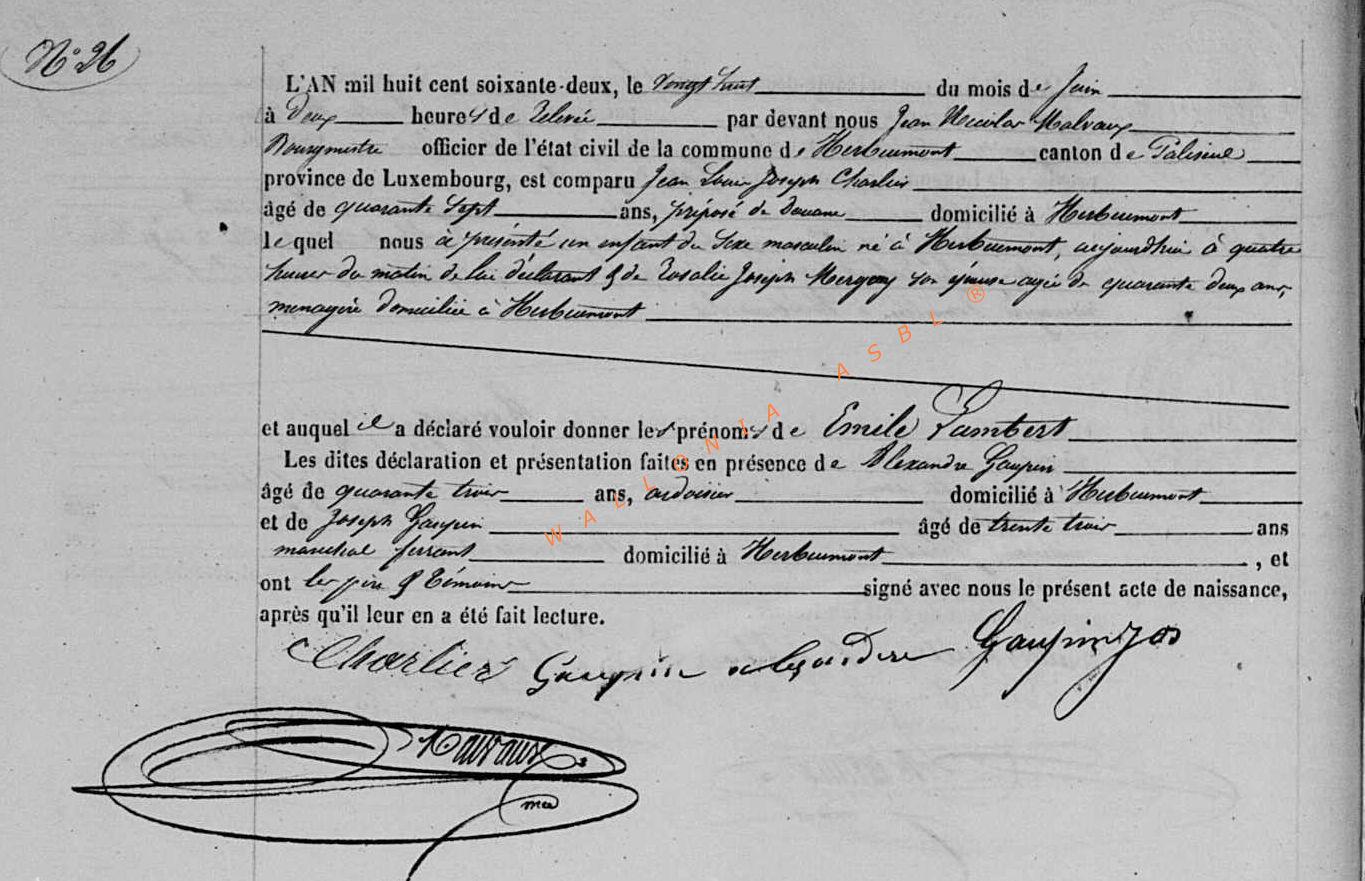 N° 26
L'AN mil huit cent soixante-deux, le vingt huit du mois de Juin
à Deux heures de relevée par devant nous Jean Nicolas Malvaux
Bourgmestre officier de l'état civil de la commune de Herbeumont canton de Paliseul
province de Luxembourg, est comparu Jean Louis Joseph Charlier
âgé de quarante sept ans, préposé de Douane domicilié à Herbeumont
lequel nous a présenté un enfant du sexe masculin né à Herbeumont, aujourdhui à quatre
heures du matin de lui déclarant & de Rosalie Joseph son épouse agée de quarante deux ans,
menagère domiciliée à Herbeumont
et auquel il a déclaré vouloir donner les prénoms de Emile Lambert
Les dites déclaration et présentation faites en présence de Alexandre Gaupin
âgé de quarante trois ans, ardoisier domicilié à Herbeumont
et de Joseph Gaupin âgé de trente trois ans
maréchal ferrant domicilié à Herbeumont, et
ont les père & témoins signé avec nous le présent acte de naissance,
après qu'il leur en a été fait lecture.
Charlier Gaupin alexandre Gaupin Jos
Malvaux
WALLONIA ASBL ®